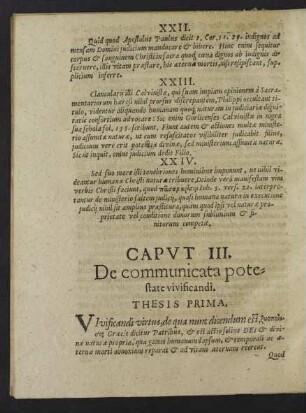 XXII.
Quid quod Apostolus Paulus dicit 1. Cor. 11. 29. indignos ad
mensam Domini judicium manducare & bibere. Hinc enim sequitur
corpus & sanguinem Christi in sacra
scernere, illis vitam præstare, his æternæ mortis,
supplicium inferre.
XXIII.
Clancularii illi Calvinistæ, qui suam impiam opinionem à Sacramentariorum
hæresi nihil prorsus discrepantem, Philippi occultant titulo,
videntur aliquando humanam quoq; naturam in judiciariæ dignitatis
consortium advocare: Sic enim Gorlicenses Calvinistæ in nigra
sua schola fol. 138. scribunt, Hunc eundem & actiones multæ ministerio
assumtæ naturæ, ut cum resuscitatos visibiliter judicabit filius,
judicium vere erit potentiæ divinæ, sed ministerium assumtæ naturæ.
Sic id inquit, omne judicium dedit Filio.
XXIV.
Sed suo more isti tenebriones hominibus imponunt, ne nihil videantur
humanæ Christi naturæ tribuere, Deinde verò manifestam vim
verbis Christi faciunt, quod Ioh. 5. vers. 22. interpretantur
de ministerio saltem judicii, quasi humana natura in executione
judicii nihil sit amplius præstitura, quàm quod ipsi vel naturæ proprietate
vel conditione donorum sublimium & finitorum
competat.
CAPVT III.
De communicata potestate
vivificandi.
THESIS PRIMA.
VIvificandi virtus, de qua nunc dicendum est,
Græcis dicitur Patribus, & est actio solius DEI & divinæ
naturæ propria, qua genus humanum lapsum, & temporali ac æterna
morti obnoxium reparat & ad vitam æternam evocat.
Quod